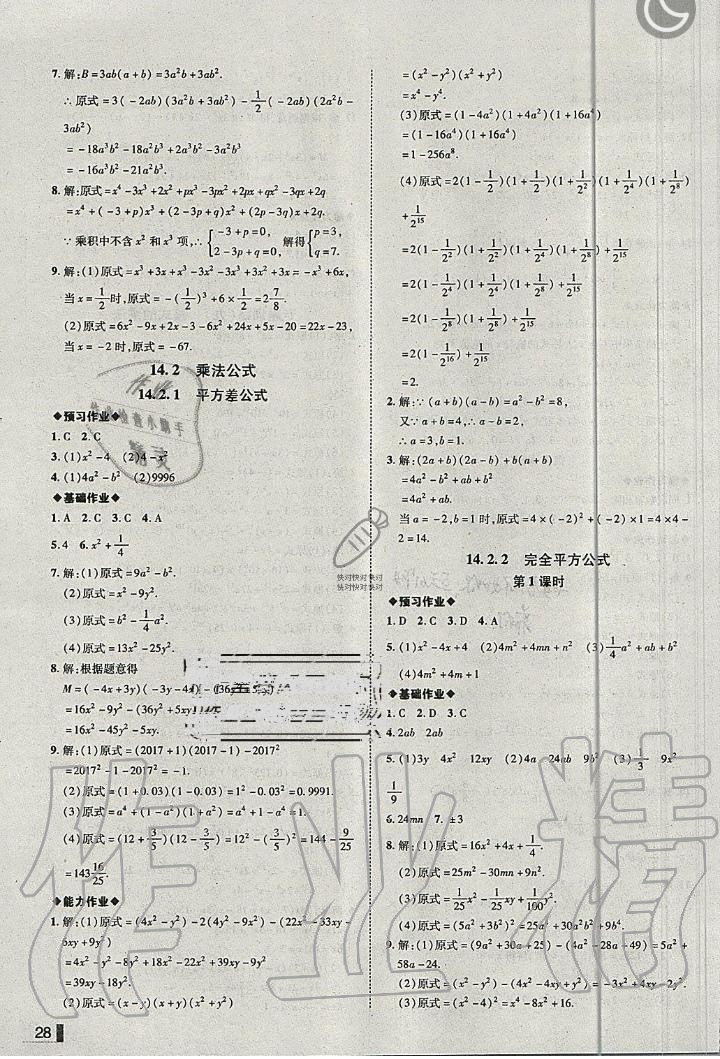 7. 解:B=3ab(a+b)=3a²b+3ab².
∴原式=3(-2ab)(3a²b+3ab²)-1/2(-2ab)(2a²b-
3ab²)
=-18a³b²-18a²b³+2a³b²-3a²b³
=-16a³b²-21a²b³.
8. 解:原式=x⁴-3x³+2x²+px³-3px²+2px+qx²-3qx+2q
=x⁴+(-3+p)x³+(2-3p+q)x²+(2p-3q)x+2q.
∵乘积中不含x²和x³项,∴{-3+p=0, 2-3p+q=0. 解得{p=3, q=7.
9. 解:(1)原式=x³+3x+x³-3x²-3x³+3x²+3x=-x³+6x,
当x=1/2时,原式=-(1/2)³+6×1/2=2 7/8.
(2)原式=6x²-9x+2x-3-6x²+24x+5x-20=22x-23,
当x=-2时,原式=-67.
14.2 乘法公式
14.2.1 平方差公式
◆预习作业◆
1. C 2. C
3. (1)x²-4 (2)4-x²
4. (1)4a²-b² (2)9996
◆基础作业◆
1. A 2. C 3. C 4. A
5. 4 6. x²+1/4
7. 解:(1)原式=9a²-b².
(2)原式=4x⁴-y².
(3)原式=b²-1/4a².
(4)原式=13x²-25y².
8. 解:根据题意得
M=(-4x+3y)(-3y-4x)-(36y²+5xy)
=16x²-9y²-(36y²+5xy)
=16x²-45y²-5xy.
9. 解:(1)原式=(2017+1)(2017-1)-2017²
=2017²-1-2017²=-1.
(2)原式=(1+0.03)(1-0.03)=1²-0.03²=0.9991.
(3)原式=a⁴+(1-a²)(1+a²)=a⁴+1-a⁴=1.
(4)原式=(12+3/5)(12-3/5)=12²-(3/5)²=144-9/25
=143 16/25.
◆能力作业◆
1. 解:(1)原式=(4x²-y²)-2(4y²-9x²)-(22x²-33xy-
6xy+9y²)
=4x²-y²-8y²+18x²-22x²+39xy-9y²
=39xy-18y².
(2)原式=(x-y)(x+y)(x²+y²)
28
=(x²-y²)(x²+y²)
=x⁴-y⁴.
(3)原式=(1-4a²)(1+4a²)(1+16a⁴)
=(1-16a⁴)(1+16a⁴)
=1-256a⁸.
(4)原式=2(1-1/2)(1+1/2)(1+1/2²)(1+1/2⁴)(1+1/2⁸)
+1/2¹⁵
=2(1-1/2²)(1+1/2²)(1+1/2⁴)(1+1/2⁸)+1/2¹⁵
=2(1-1/2⁴)(1+1/2⁴)(1+1/2⁸)+1/2¹⁵
=2(1-1/2⁸)(1+1/2⁸)+1/2¹⁵
=2(1-1/2¹⁶)+1/2¹⁵
=2.
2. 解:∵(a+b)(a-b)=a²-b²=8,
又∵a+b=4,∴a-b=2,
∴a=3,b=1.
3. 解:(2a+b)(2a-b)+b(a+b)
=4a²-b²+ab+b²
=4a²+ab.
当a=-2,b=1时,原式=4×(-2)²+(-2)×1=4×4-
2=14.
14.2.2 完全平方公式
第1课时
◆预习作业◆
1. D 2. D 3. D 4. A
5. (1)x²-4x+4 (2)4m²+4mn+n² (3)1/4a²+ab+b²
(4)4m²+4m+1
◆基础作业◆
1. C 2. D 3. C
4. 2ab 2ab
5. (1)3y 4x² 12xy (2)4a 24ab 9b² (3)1/3 9x²
1/9
6. 24mn 7. ±3
8. 解:(1)原式=16x²+4x+1/4.
(2)原式=25m²-30mn+9n².
(3)原式=1/25x²-1/25xy+1/100y².
(4)原式=(5a²+3b²)²=25a⁴+30a²b²+9b⁴.
9. 解:(1)原式=(9a²+30a+25)-(4a²-28a+49)=5a²+
58a-24.
(2)原式=(x²-y²)-(4x²-4xy+y²)=-3x²+4xy-2y².
(3)原式=(x²-4)²=x⁴-8x²+16.
快对快对 快对
快对快对 快对
作业精